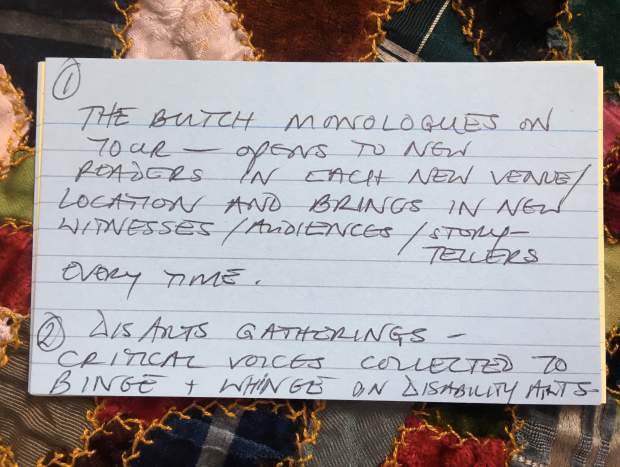 ①
THE BUTCH MONOLOGUES ON
TOUR — OPENS TO NEW
READERS IN EACH NEW VENUE/
LOCATION AND BRINGS IN NEW
WITNESSES/AUDIENCES/STORY-
TELLERS
EVERY TIME.
② DIS ARTS GATHERINGS -
CRITICAL VOICES COLLECTED TO
BINGE + WHINGE ON DISABILITY ARTS